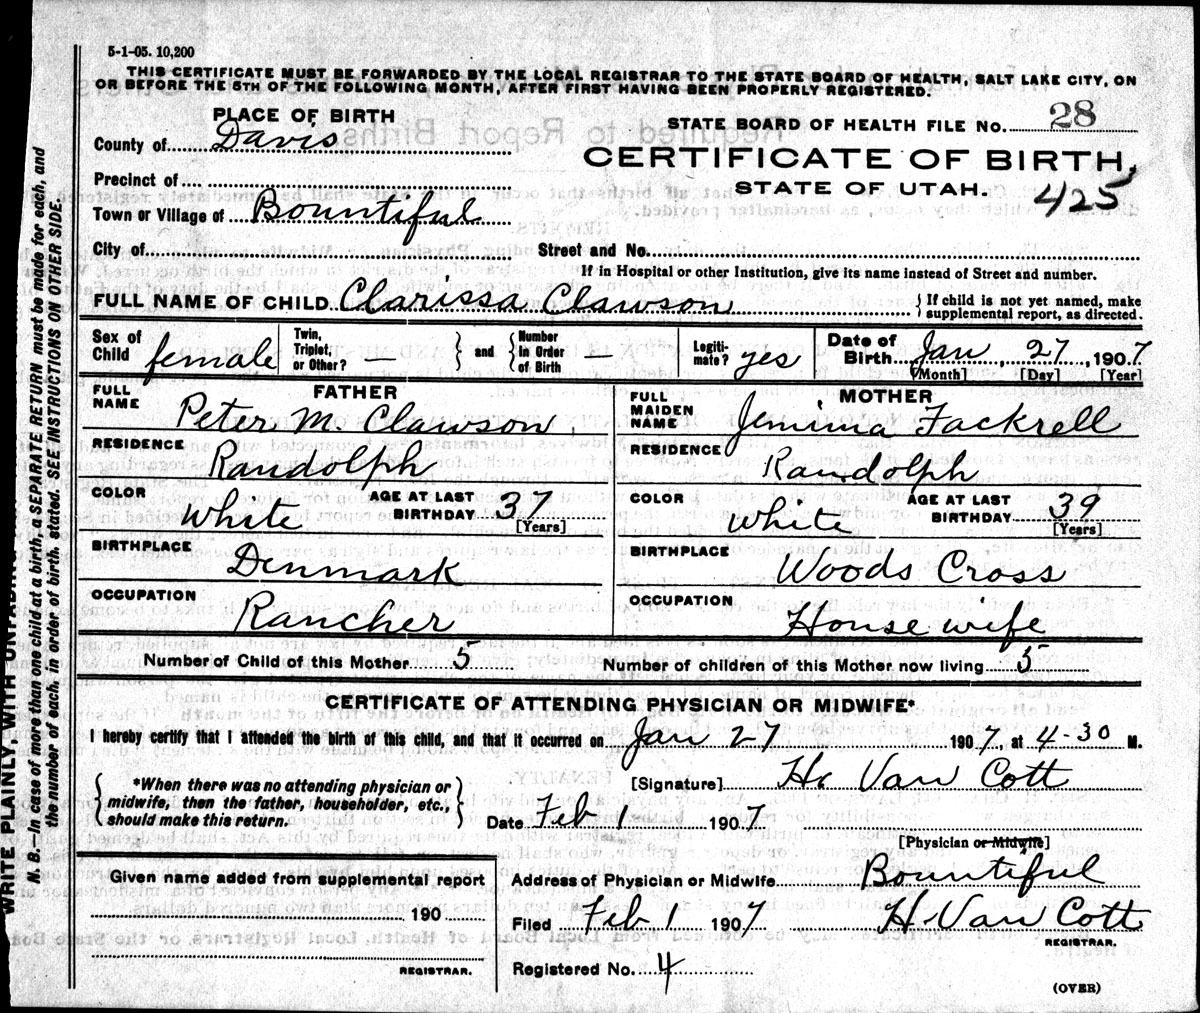 5-1-05. 10,200
THIS CERTIFICATE MUST BE FORWARDED BY THE LOCAL REGISTRAR TO THE STATE BOARD OF HEALTH, SALT LAKE CITY, ON
OR BEFORE THE 5TH OF THE FOLLOWING MONTH, AFTER FIRST HAVING BEEN PROPERLY REGISTERED.
PLACE OF BIRTH
STATE BOARD OF HEALTH FILE No. 28
County of Davis
CERTIFICATE OF BIRTH,
Precinct of
STATE OF UTAH. 425
Town or Village of Bountiful
City of Street and No.
If in Hospital or other Institution, give its name instead of Street and number.
FULL NAME OF CHILD Clarissa Clawson { If child is not yet named, make
supplemental report, as directed.
Sex of Child female Twin, Triplet, or Other? — } and { Number in Order of Birth — Legiti-mate? yes Date of Birth Jan, 27, 1907
[Month] [Day] [Year]
FATHER MOTHER
FULL NAME Peter M. Clawson FULL MAIDEN NAME Jemima Fackrell
RESIDENCE Randolph RESIDENCE Randolph
COLOR White AGE AT LAST BIRTHDAY 37 [Years] COLOR White AGE AT LAST BIRTHDAY 39 [Years]
BIRTHPLACE Denmark BIRTHPLACE Woods Cross
OCCUPATION Rancher OCCUPATION House wife
Number of Child of this Mother 5 Number of children of this Mother now living 5
CERTIFICATE OF ATTENDING PHYSICIAN OR MIDWIFE*
I hereby certify that I attended the birth of this child, and that it occurred on Jan 27 1907, at 4-30 M.
{ *When there was no attending physician or
midwife, then the father, householder, etc.,
should make this return. }
[Signature] H. Van Cott
Date Feb 1 1907
[Physician or Midwife]
Given name added from supplemental report
190
REGISTRAR.
Address of Physician or Midwife Bountiful
Filed Feb 1 1907 H. Van Cott
REGISTRAR.
Registered No. 4
(OVER)
WRITE PLAINLY, WITH UNFADING
N. B.—In case of more than one child at a birth, a SEPARATE RETURN must be made for each, and
the number of each, in order of birth, stated. SEE INSTRUCTIONS ON OTHER SIDE.